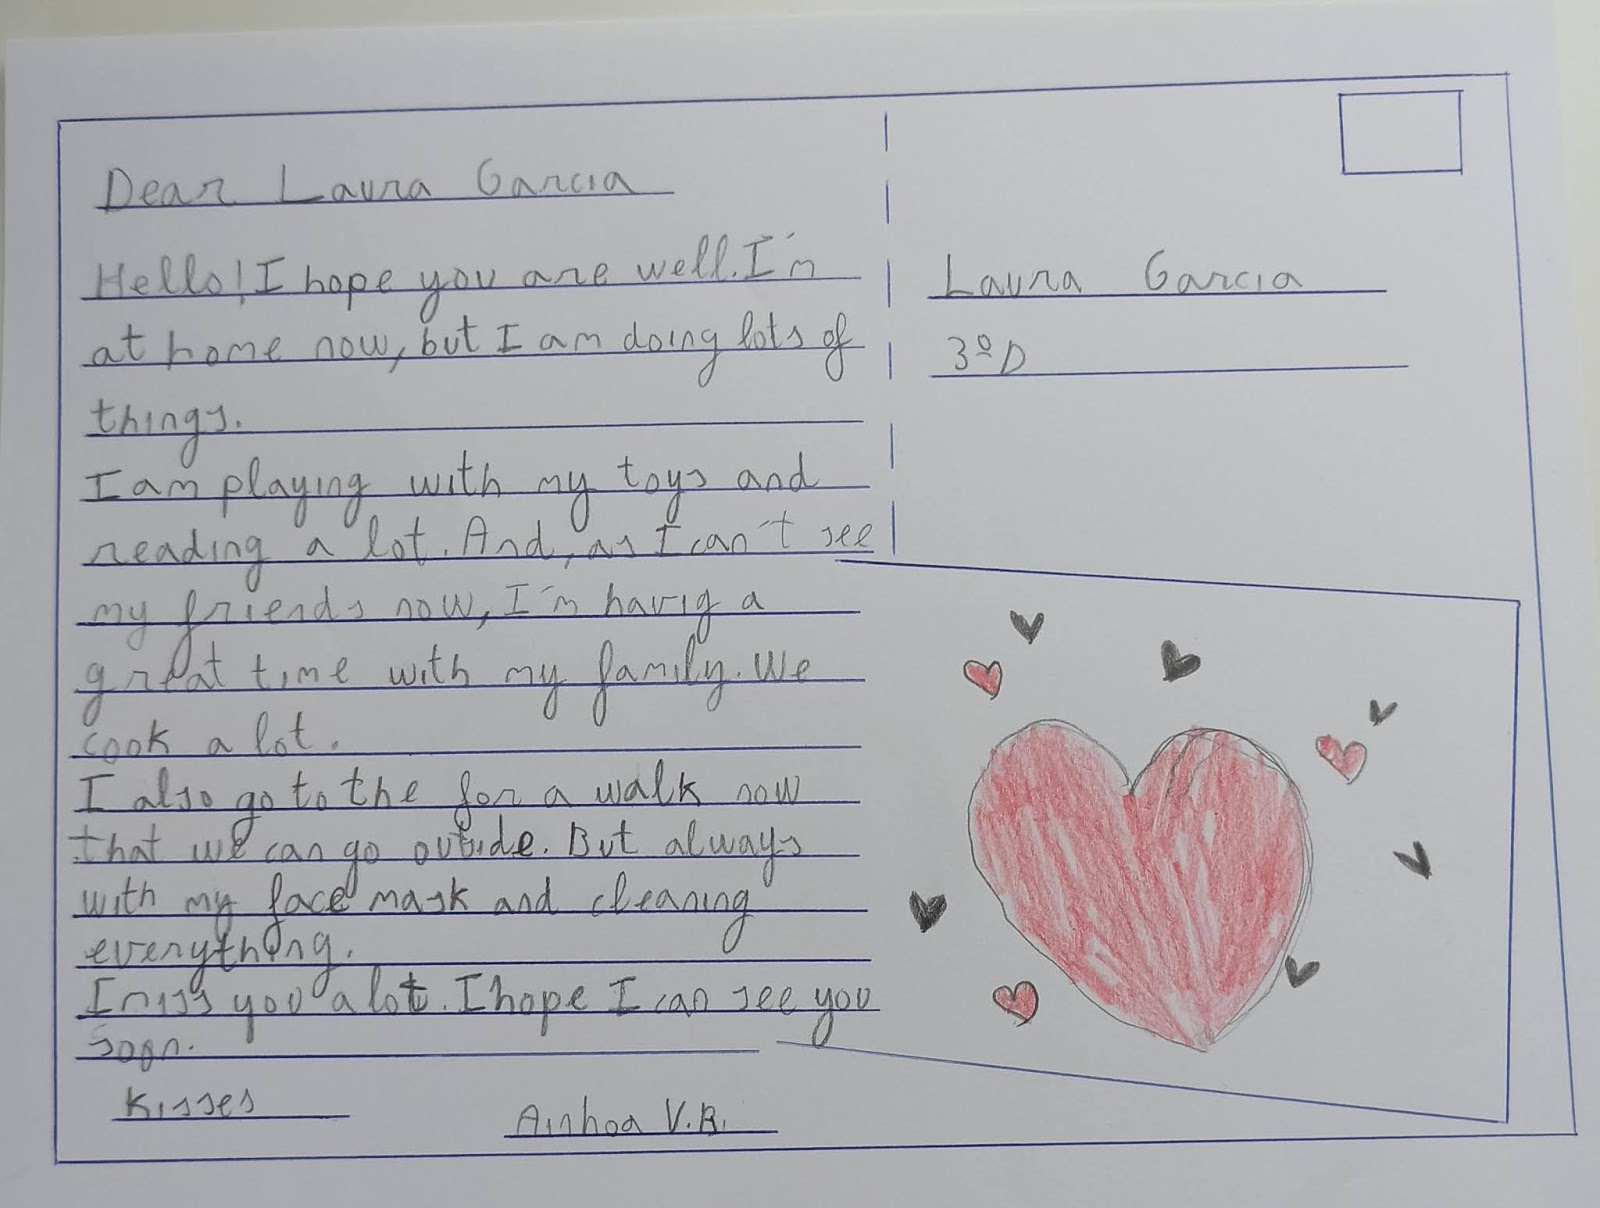 Dear Laura Garcia
Hello! I hope you are well. I'm
at home now, but I am doing lots of
things.
I am playing with my toys and
reading a lot. And, as I can't see
my friends now, I'm havig a
great time with my family. We
cook a lot.
I also go to the for a walk now
that we can go outside. But always
with my face mask and cleaning
everything.
I miss you a lot. I hope I can see you
soon.
Kisses
Ainhoa V.R.
Laura Garcia
3º D